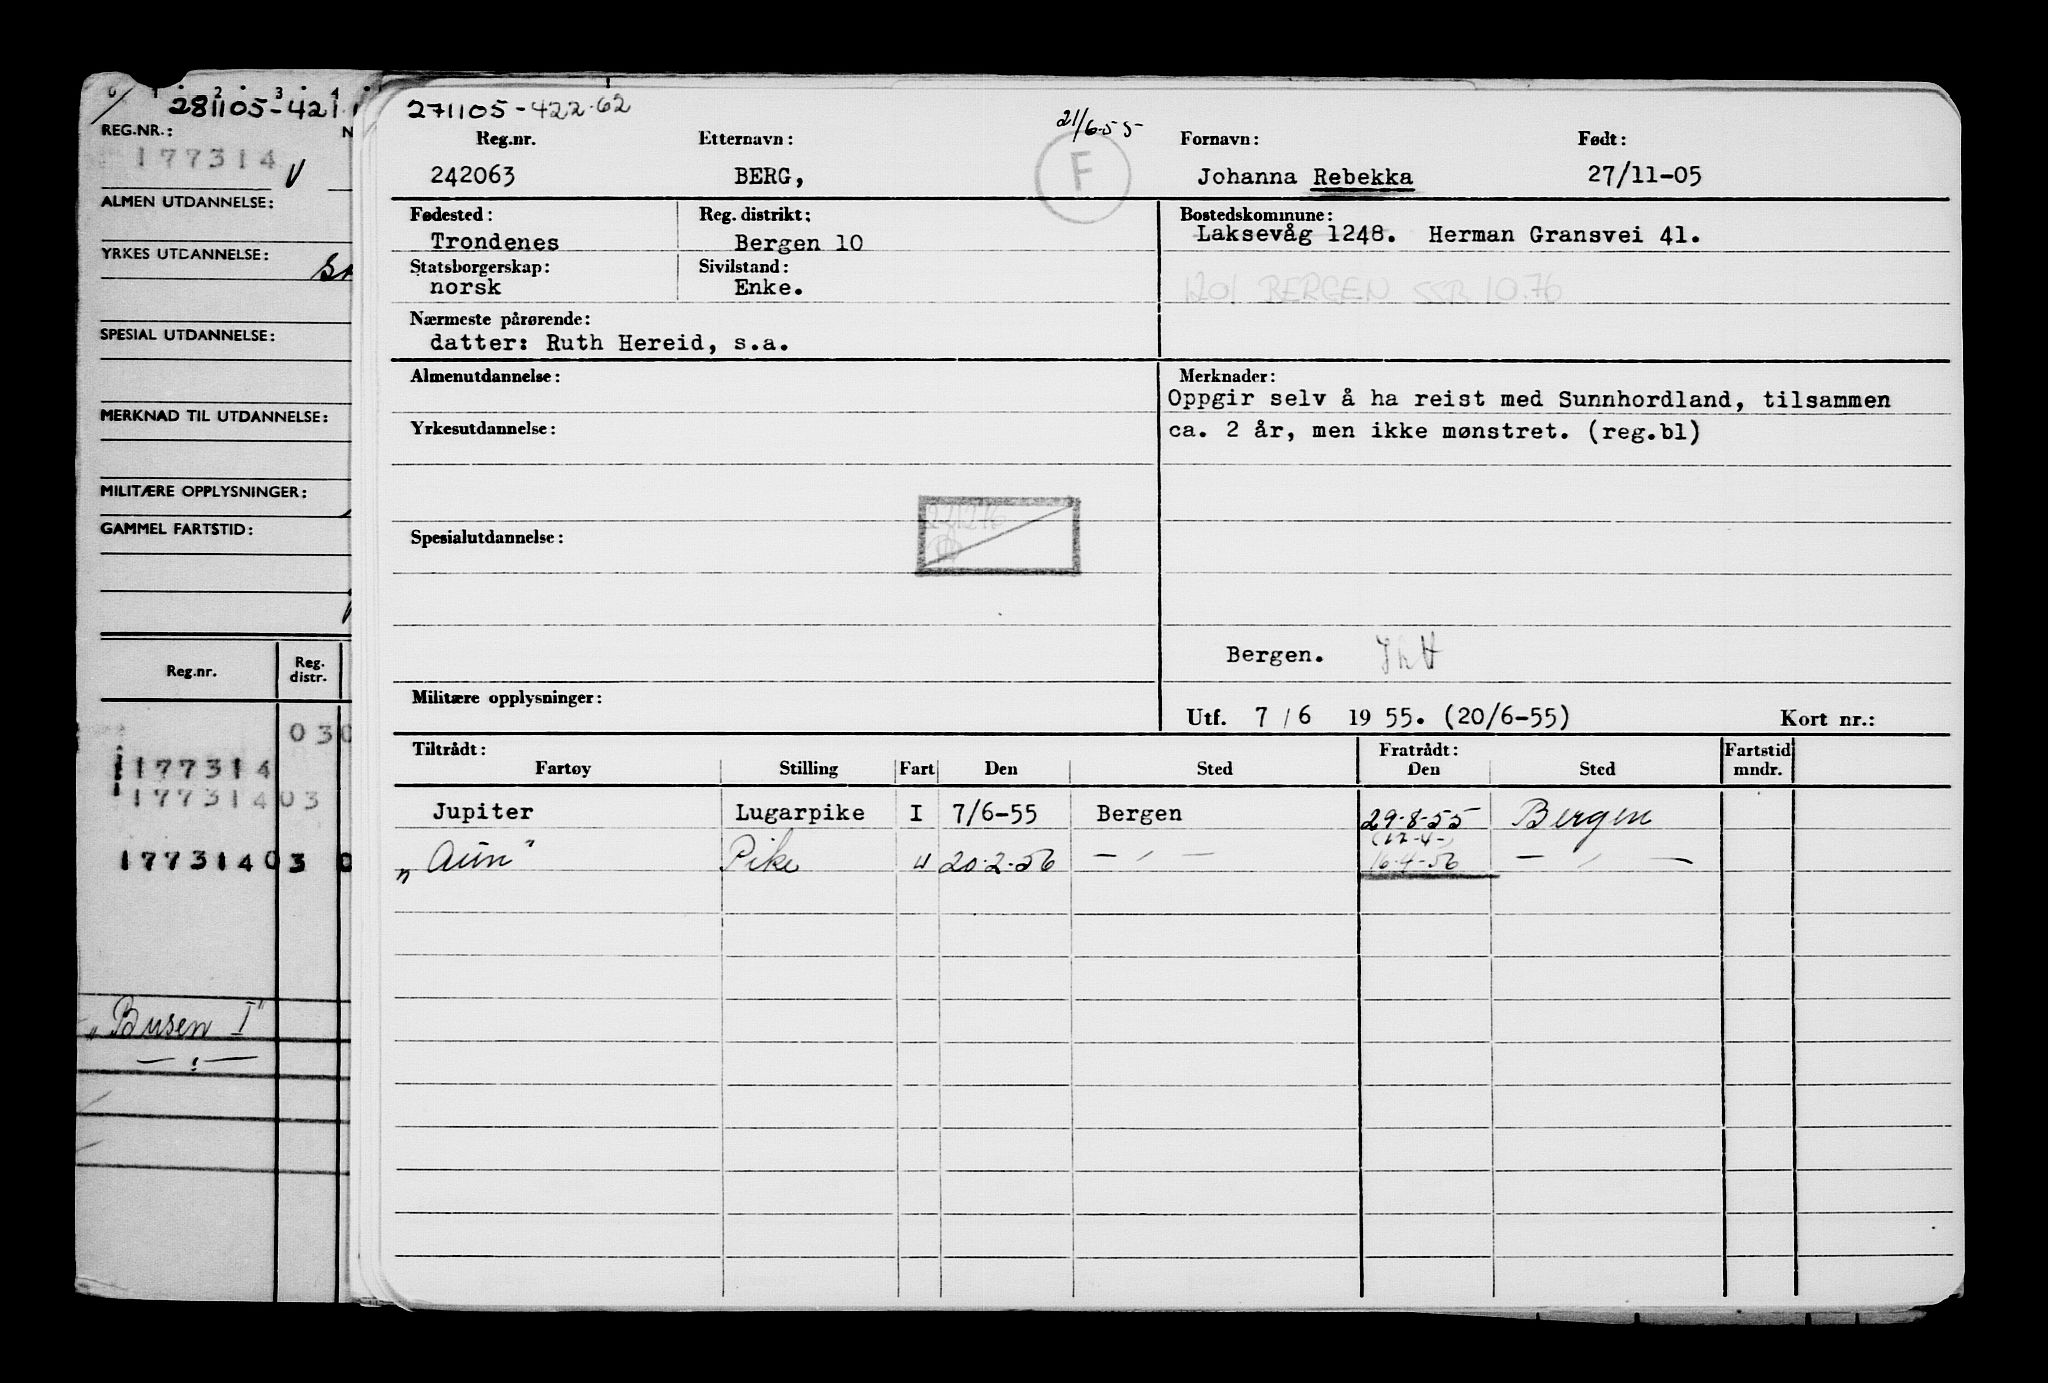 281105-421
REG.NR.:
177314
V
ALMEN UTDANNELSE:
YRKES UTDANNELSE:
SPESIAL UTDANNELSE:
MERKNAD TIL UTDANNELSE:
MILITÆRE OPPLYSNINGER:
GAMMEL FARTSTID:
Reg.nr. Reg. distr.
03
177314
17731403
17731403
"Busen I"
271105-422.62
21/6-55
Reg.nr. Etternavn: Fornavn: Født:
242063 BERG, F Johanna Rebekka 27/11-05
Fødested: Reg. distrikt: Bostedskommune:
Trondenes Bergen 10 Laksevåg 1248. Herman Gransvei 41.
Statsborgerskap: Sivilstand:
norsk Enke. 1201 BERGEN SSB 10.76
Nærmeste pårørende:
datter: Ruth Hereid, s.a.
Almenutdannelse: Merknader:
Oppgir selv å ha reist med Sunnhordland, tilsammen
Yrkesutdannelse: ca. 2 år, men ikke mønstret. (reg.bl)
Spesialutdannelse:
Bergen.
Militære opplysninger:
Utf. 7/6 1955. (20/6-55) Kort nr.:
Tiltrådt: Fratrådt: Fartstid
Fartøy Stilling Fart Den Sted Den Sted mndr.
Jupiter Lugarpike I 7/6-55 Bergen 29-8-55 Bergen
(12-4-)
"Aun" Pike " 20-2-56 — ʹ — 16-4-56 — ʹ —